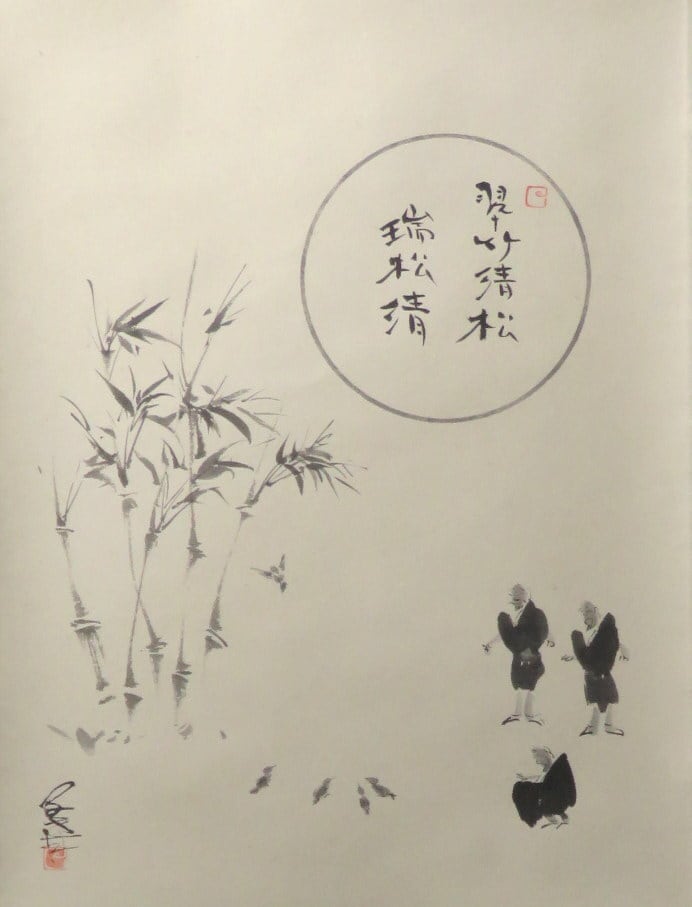 翠竹清松
瑞松清